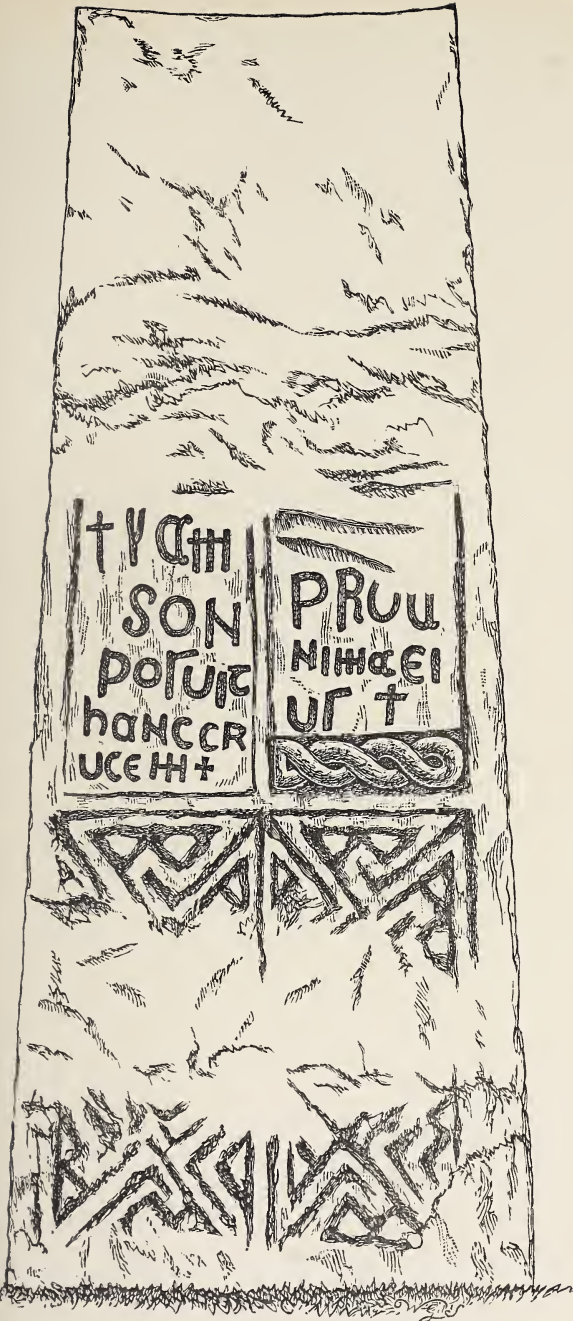 † SAM
SON
POSUIT
hANC CR
UCEM +
PRUu
NIMAEI
US †